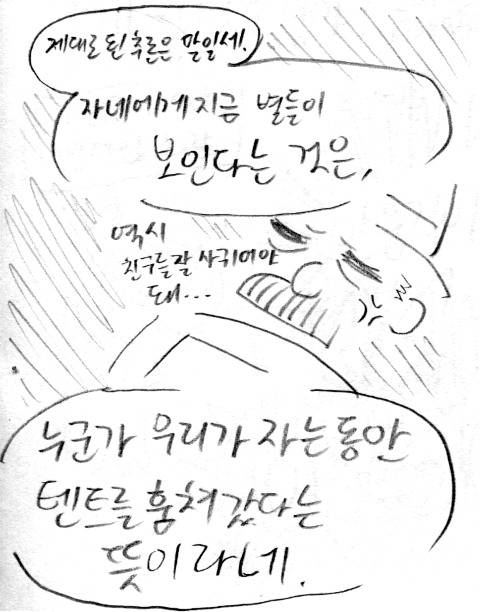 제대로 된 추론은 말일세.
자네에게 지금 별들이
보인다는 것은,
역시
친구를 잘 사귀어야
돼...
깟
누군가 우리가 자는 동안
텐트를 훔쳐갔다는
뜻이라네.